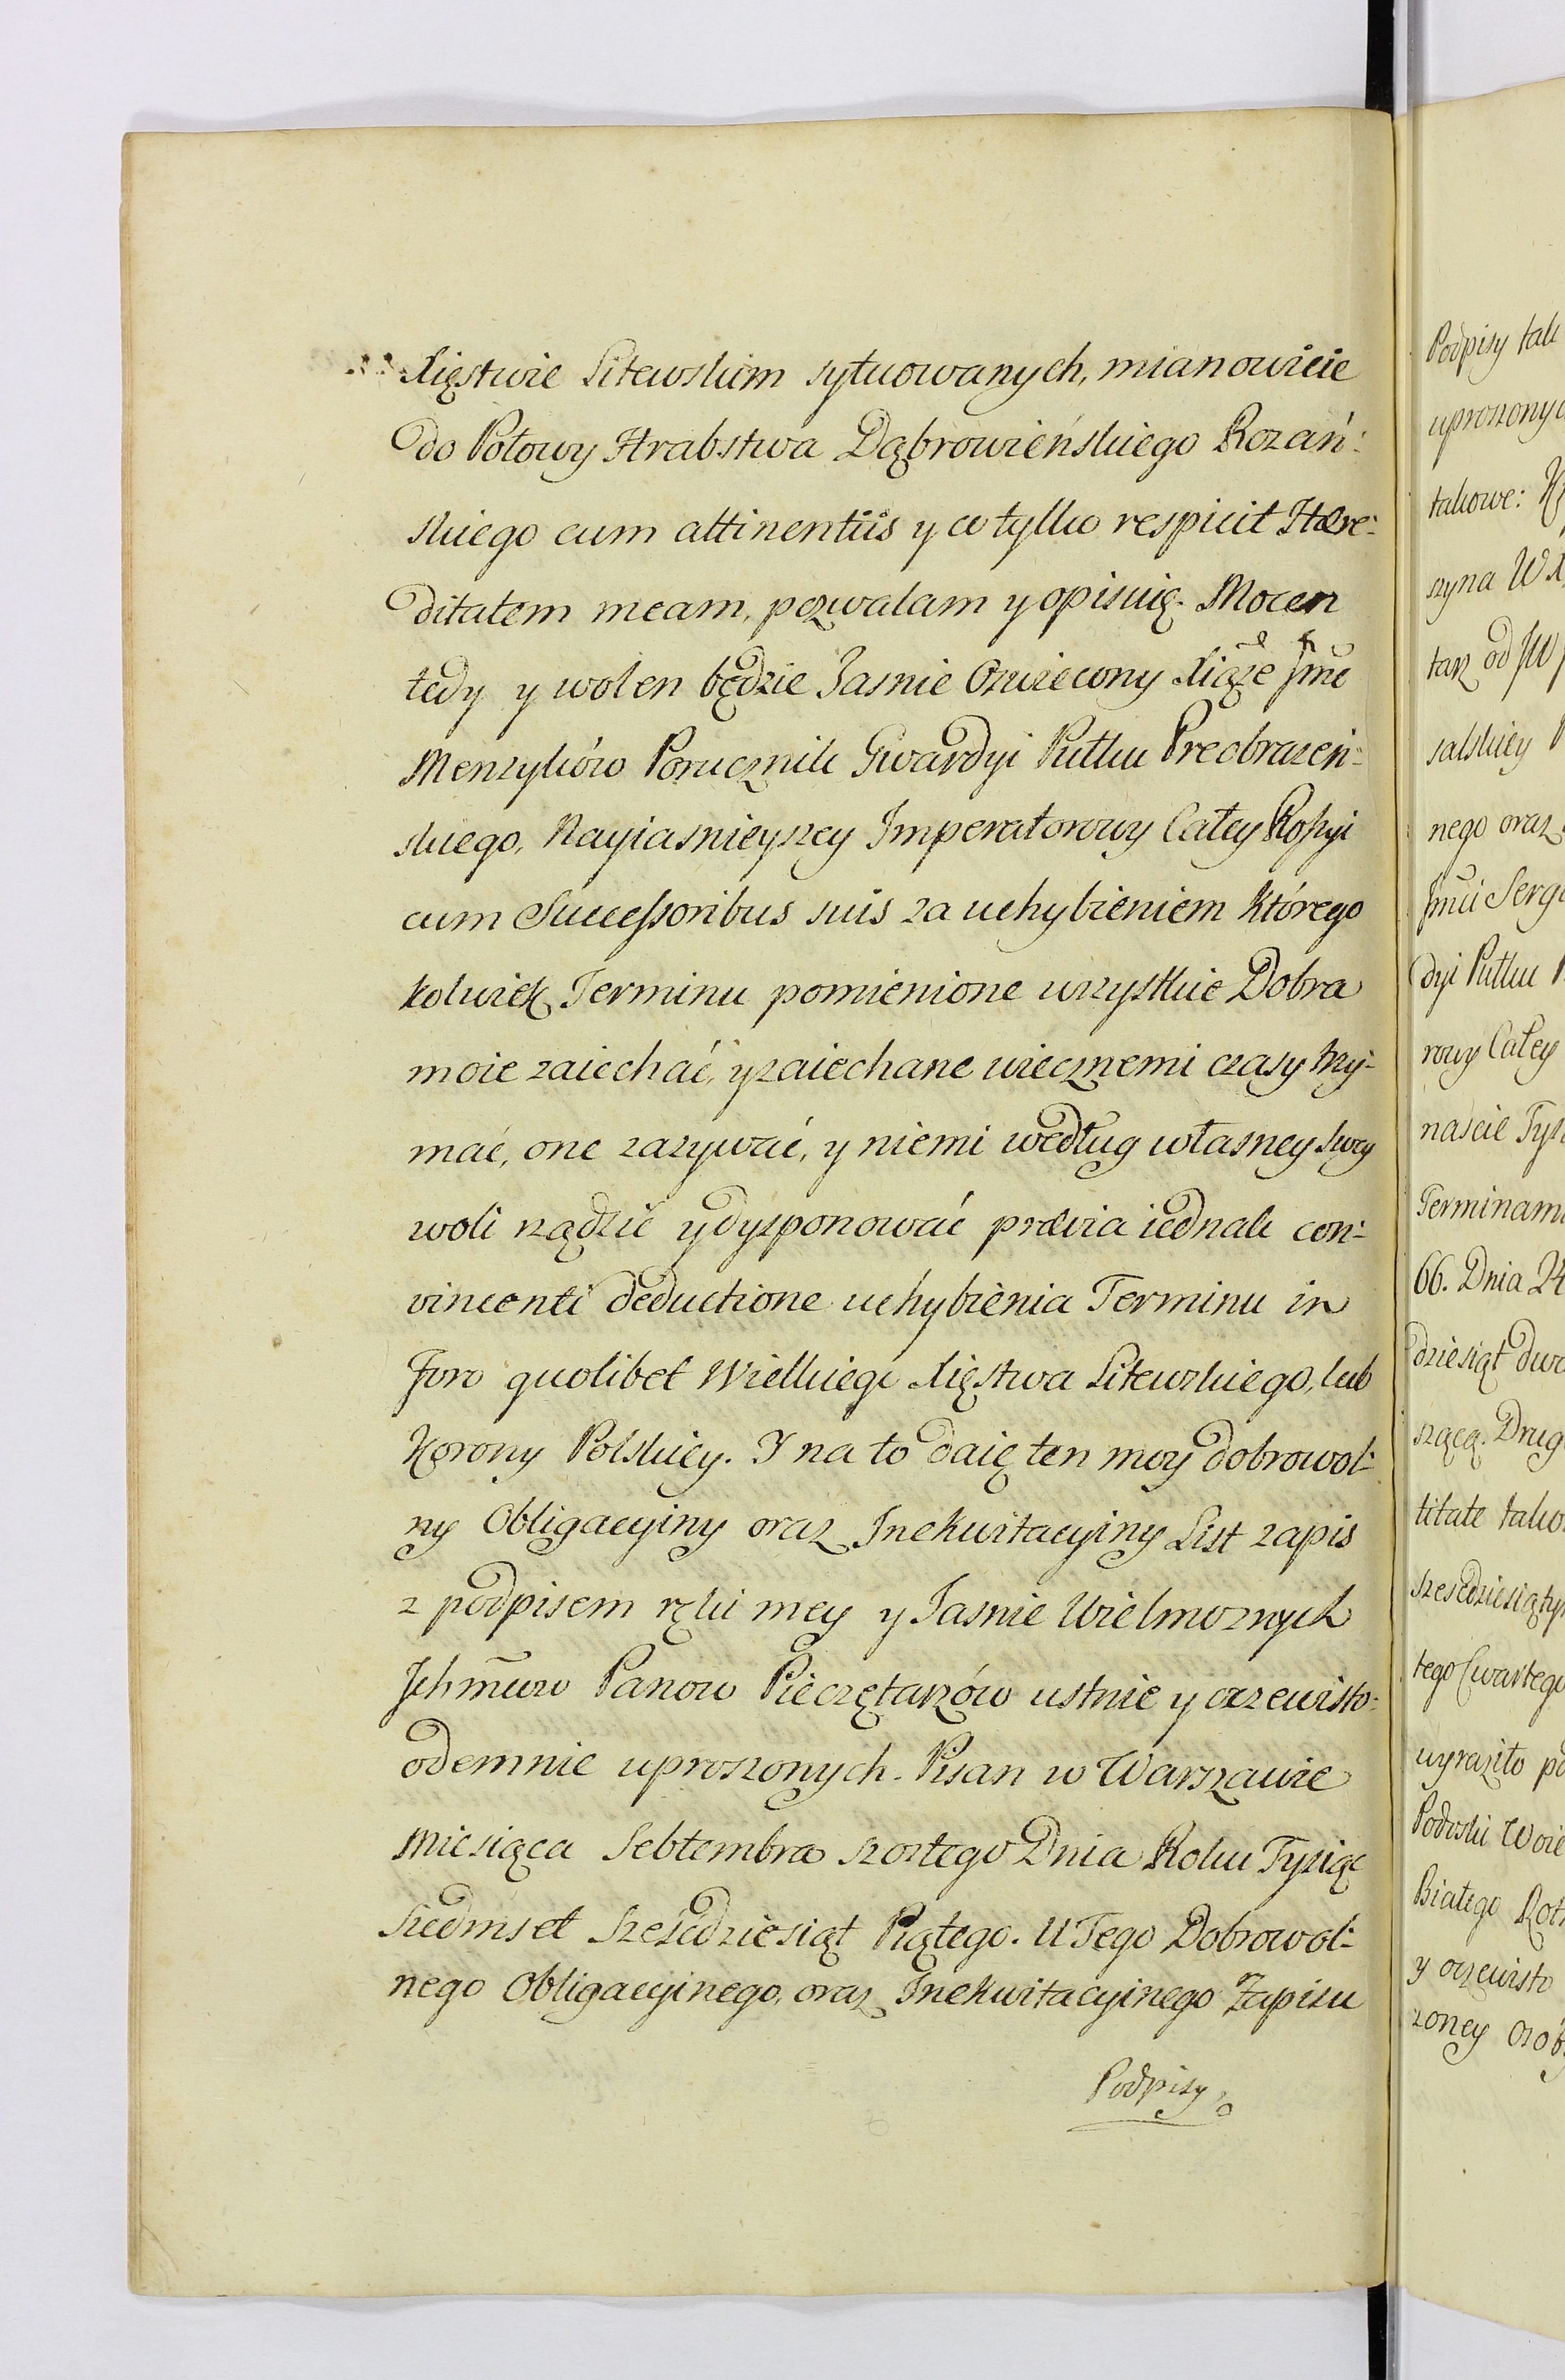 Xięstwie Litewskim sytuowanych, mianowicie
do Połowy Hrabstwa Dąbrowieńskiego Rozań:
skiego cum attinentiis y co tylko respicit Hære:
ditatem meam, pozwalam y opisuię. Mocen
tedy y wolen będzie Jasnie Oswiecony Xiąże Jmć
Menzyków Porucznik Gwardyi Pułku Preobrazeń:
skiego, Nayiasnieyszey Imperatorowy Całey Rossyi
cum Successoribus suis za uchybieniem Którego
kolwiek Terminu pomienione wszystkie Dobra
moie zaiechać, y zaiechane wiecznemi czasy trzy:
mać, one zazywać, y niemi według własney swey
woli rządzić y dysponować prævia iednak con:
vincenti deductione uchybienia Terminu in
Foro quolibet Wielkiego Xięstwa Litewskiego, lub
Korony Polskiey. Y na to daię ten moy dobrowol:
ny Obligacyiny oraz Inekwitacyiny List zapis
z podpisem ręki mey y Jasnie Wielmoznych
Ichmciuw Panow Pieczętarzów ustnie y oczewisto:
odemnie uproszonych. Pisan w Warszawie
Miesiąca Sebtembra szostego Dnia Roku Tysiąc
Siedmset Szesćdziesiąt Piątego. U Tego Dobrowol:
nego Obligacyinego, oraz Inekwitacyinego Zapisu
Podpisy
Podpisy tak
uproszonyc
takowe:
szyna WX
tarz od JW
salskiey
nego oraz
Jmci Serg
dyi Pułku
rowy Całey
nascie Tys
Terminam
66. Dnia 24
dziesiąt dwo
szącą. Drug
titate tako
szesćdziesiąty
tego Czwartego
wyraziło po
Podoski Woie
Białego Rot
y oczewisto
zoney Osób